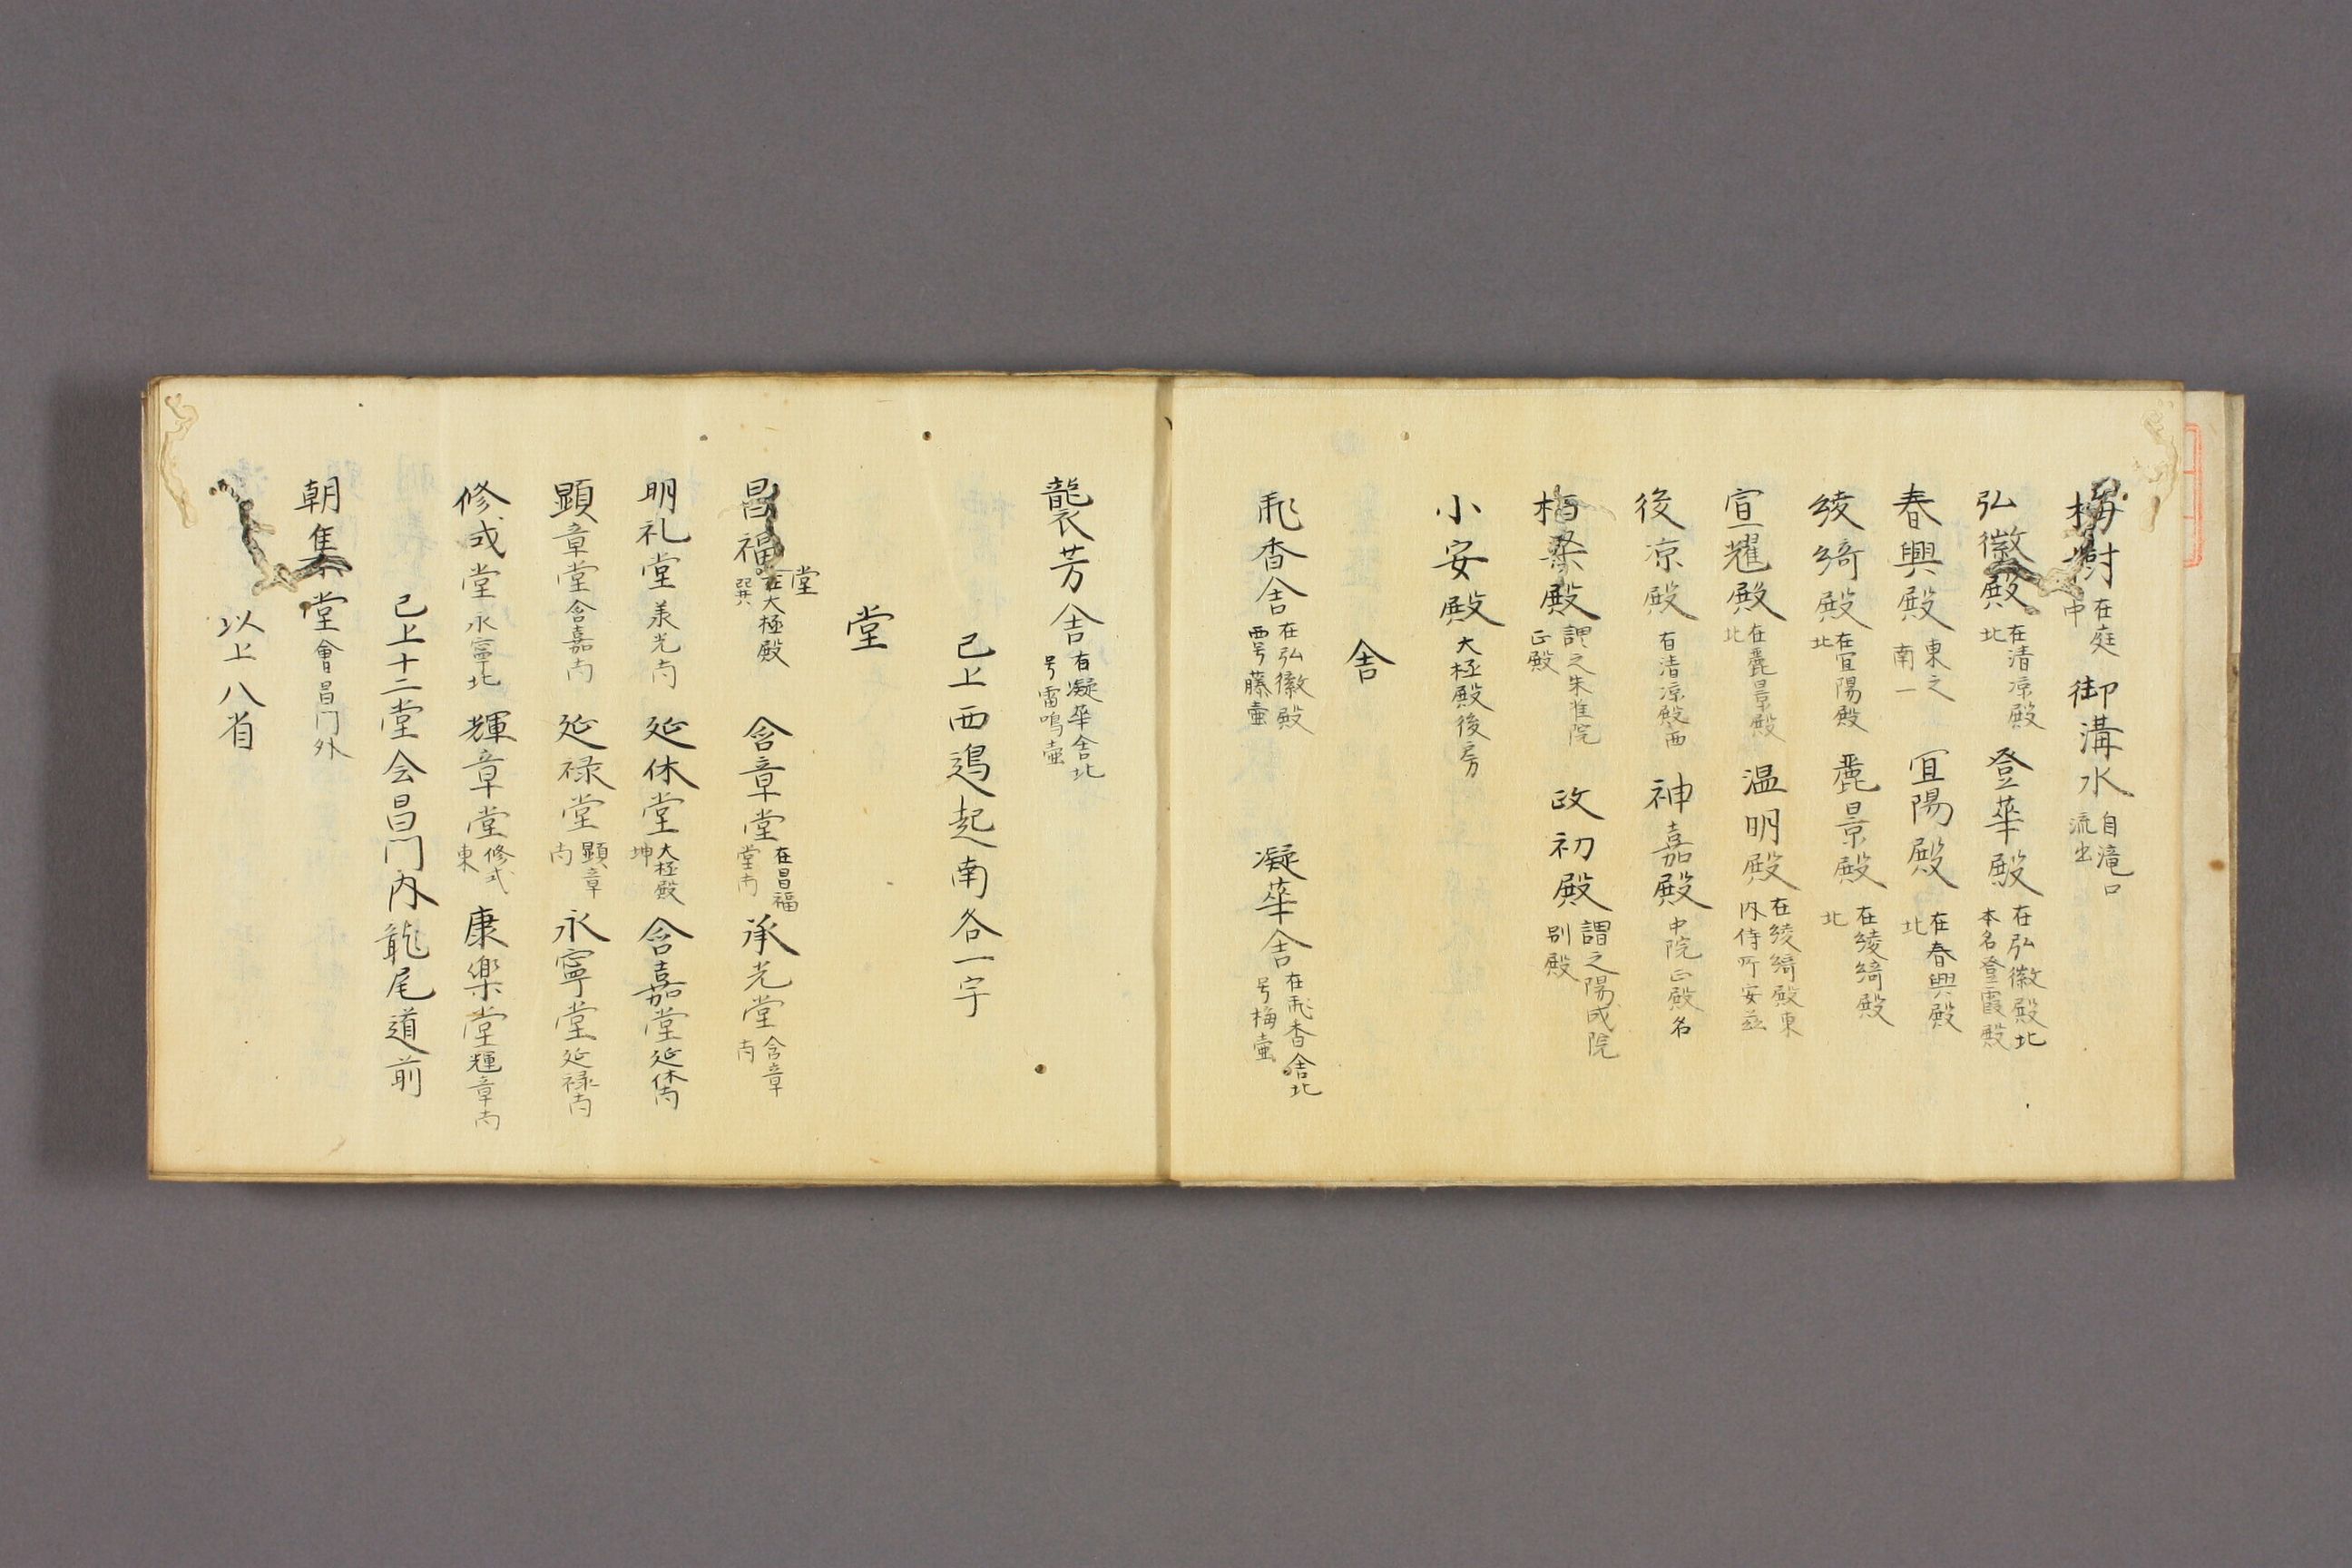 梅樹 在庭中 御溝水 自滝口流出
弘徽殿 在清凉殿北 登華殿 在弘徽殿北本名登霞殿
春興殿 東之南一 宜陽殿 在春興殿北
綾綺殿 在宜陽殿北 麗景殿 在綾綺殿北
宣耀殿 在麗景殿北 温明殿 在綾綺殿東内侍所安並
後凉殿 有清凉殿西 神嘉殿 中院正殿名
栢梁殿 謂之朱雀院正殿 政初殿 謂之陽成院別殿
小安殿 大極殿後房
舎
飛香舎 在弘徽殿西号藤壷 凝華舎 在飛香舎北号梅壷
襲芳舎 有凝華舎北号雷鳴壷
已上西邊起南各一宇
堂
昌福堂 在大極殿巽 含章堂 在昌福堂南 承光堂 含章南
明礼堂 承光南 延休堂 大極殿坤 含嘉堂 延休南
顕章堂 含嘉南 延禄堂 顕章南 永寧堂 延禄南
修式堂 永寧北 輝章堂 修式東 康楽堂 輝章南
已上十二堂会昌門内龍尾道前
朝集堂 會昌門外
以上八省